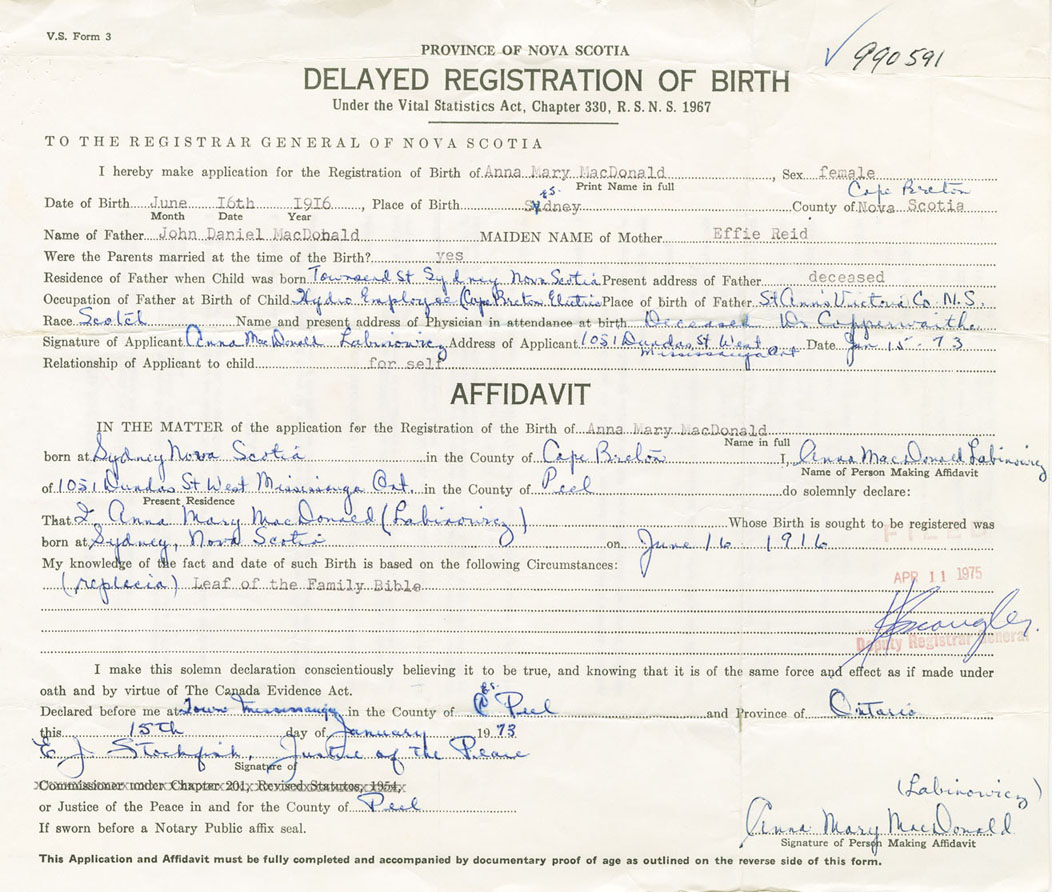 V.S. Form 3
990591
PROVINCE OF NOVA SCOTIA
DELAYED REGISTRATION OF BIRTH
Under the Vital Statistics Act, Chapter 330, R.S.N.S. 1967
TO THE REGISTRAR GENERAL OF NOVA SCOTIA
I hereby make application for the Registration of Birth of Anna Mary MacDonald, Sex female
Print Name in full
Cape Breton
Date of Birth June 16th 1916, Place of Birth Sydney County of Nova Scotia
Month Date Year
Name of Father John Daniel MacDonald MAIDEN NAME of Mother Effie Reid
Were the Parents married at the time of the Birth? yes
Residence of Father when Child was born Townsend St Sydney Nova Scotia Present address of Father deceased
Occupation of Father at Birth of Child Hydro Employee (Cape Breton Electric Place of birth of Father St Ann's Victoria Co. N.S.
Race Scotch Name and present address of Physician in attendance at birth Deceased Dr
Signature of Applicant Anna MacDonald Labinowicz Address of Applicant 1051 Dundas St West Date Jan 15 - 73
Mississauga Ont
Relationship of Applicant to child for self
AFFIDAVIT
IN THE MATTER of the application for the Registration of the Birth of Anna Mary MacDonald
Name in full
born at Sydney Nova Scotia in the County of Cape Breton I, Anna MacDonald Labinowicz
Name of Person Making Affidavit
of 1051 Dundas St West Mississauga Ont. in the County of Peel do solemnly declare:
Present Residence
That I, Anna Mary MacDonald (Labinowicz) Whose Birth is sought to be registered was
born at Sydney, Nova Scotia on June 16 - 1916
My knowledge of the fact and date of such Birth is based on the following Circumstances:
(replecia) Leaf of the Family Bible
FILED
APR 11 1975
Deputy Registrar General
I make this solemn declaration conscientiously believing it to be true, and knowing that it is of the same force and effect as if made under
oath and by virtue of The Canada Evidence Act.
Declared before me at Town Mississauga in the County of Peel and Province of Ontario
this 15th day of January 1973
E J Stockfish, Justice of the Peace
Signature of
Commissioner under Chapter 201, Revised Statutes, 1954,
or Justice of the Peace in and for the County of Peel
If sworn before a Notary Public affix seal.
(Labinowicz)
Anna Mary MacDonald
Signature of Person Making Affidavit
This Application and Affidavit must be fully completed and accompanied by documentary proof of age as outlined on the reverse side of this form.